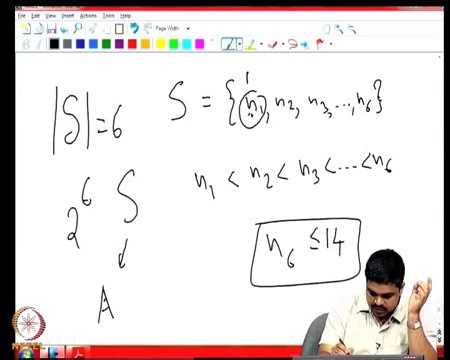 File Edit View Insert Actions Tools Help
Page Width
|S| = 6
S = {n₁, n₂, n₃, ..., n₆}
1
n₁ < n₂ < n₃ < ... < n₆
2⁶ S
n₆ ≤ 14
A
NPTEL